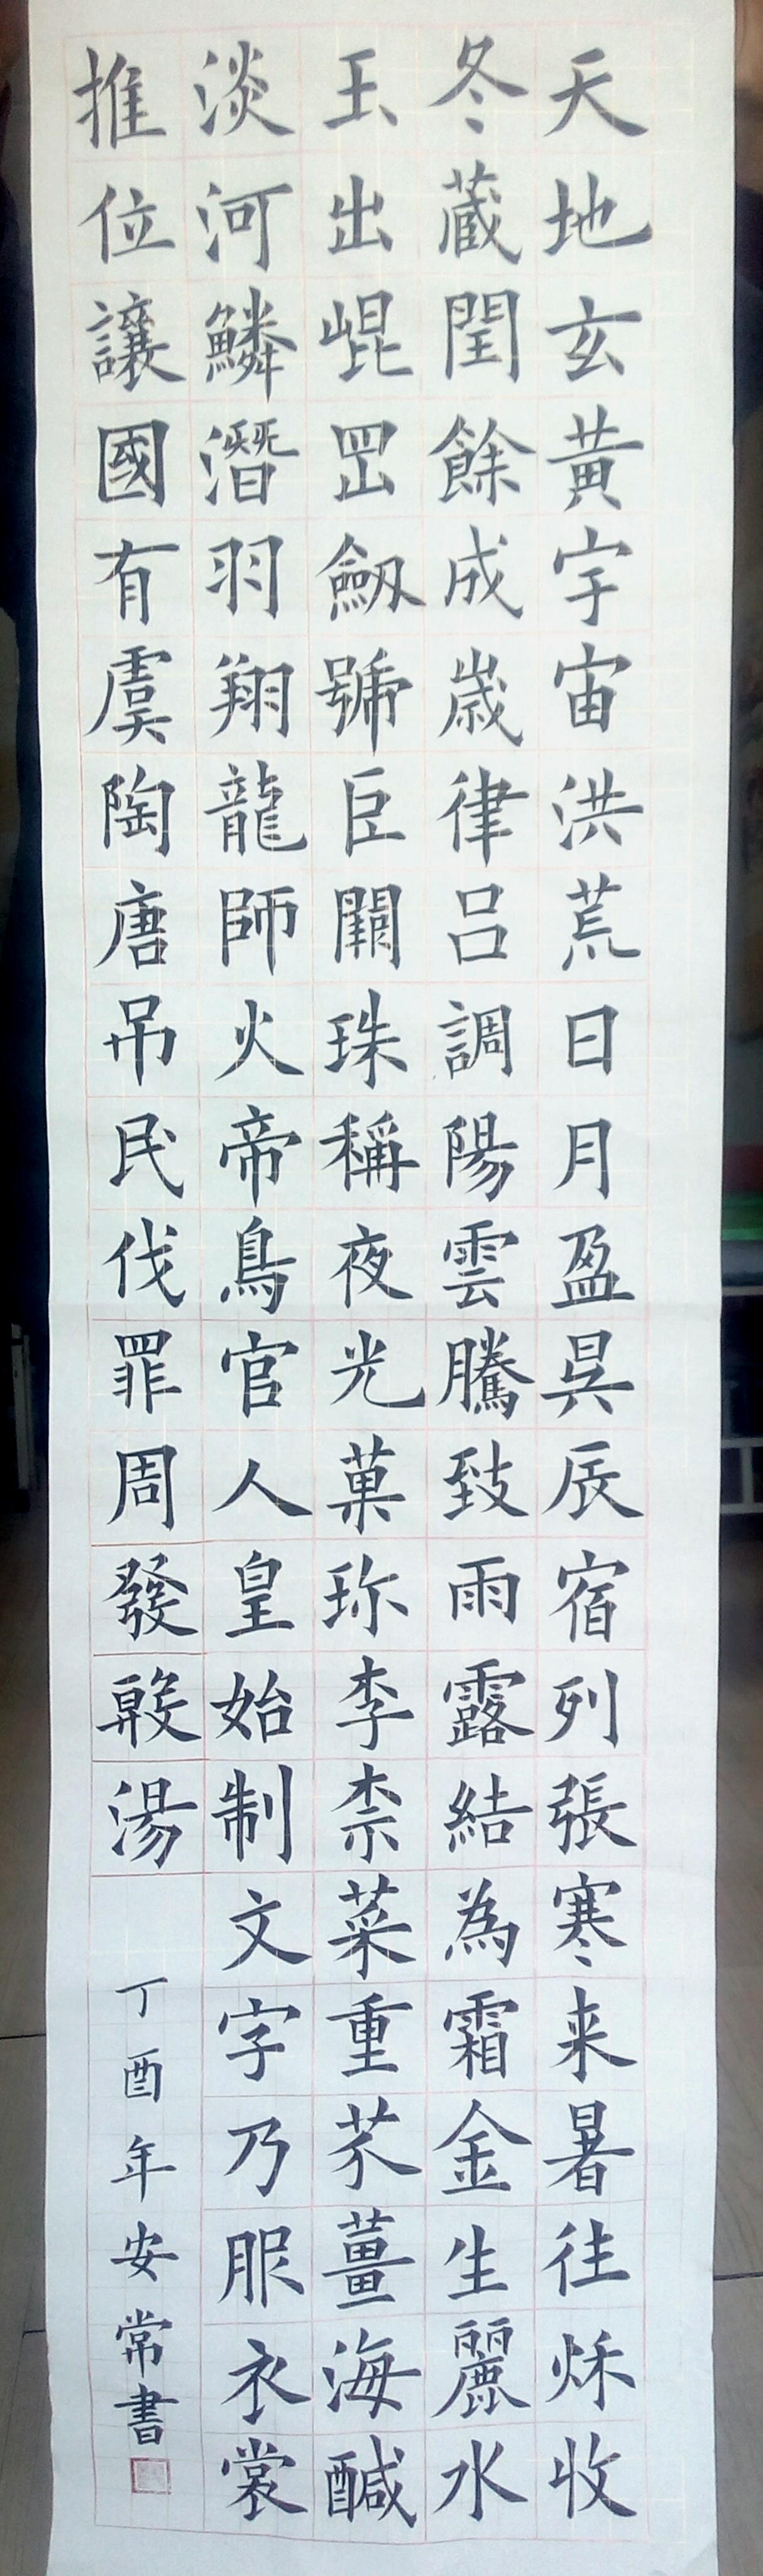 天地玄黃宇宙洪荒日月盈昃辰宿列張寒来暑往秌收
冬蔵閏餘成歳律吕調陽雲騰致雨露結為霜金生麗水
玉出崐岡劒號巨闕珠稱夜光菓珎李柰菜重芥薑海醎
淡河鱗潛羽翔龍師火帝鳥官人皇始制文字乃服衣裳
推位讓國有虞陶唐吊民伐罪周發殷湯
丁酉年安常書